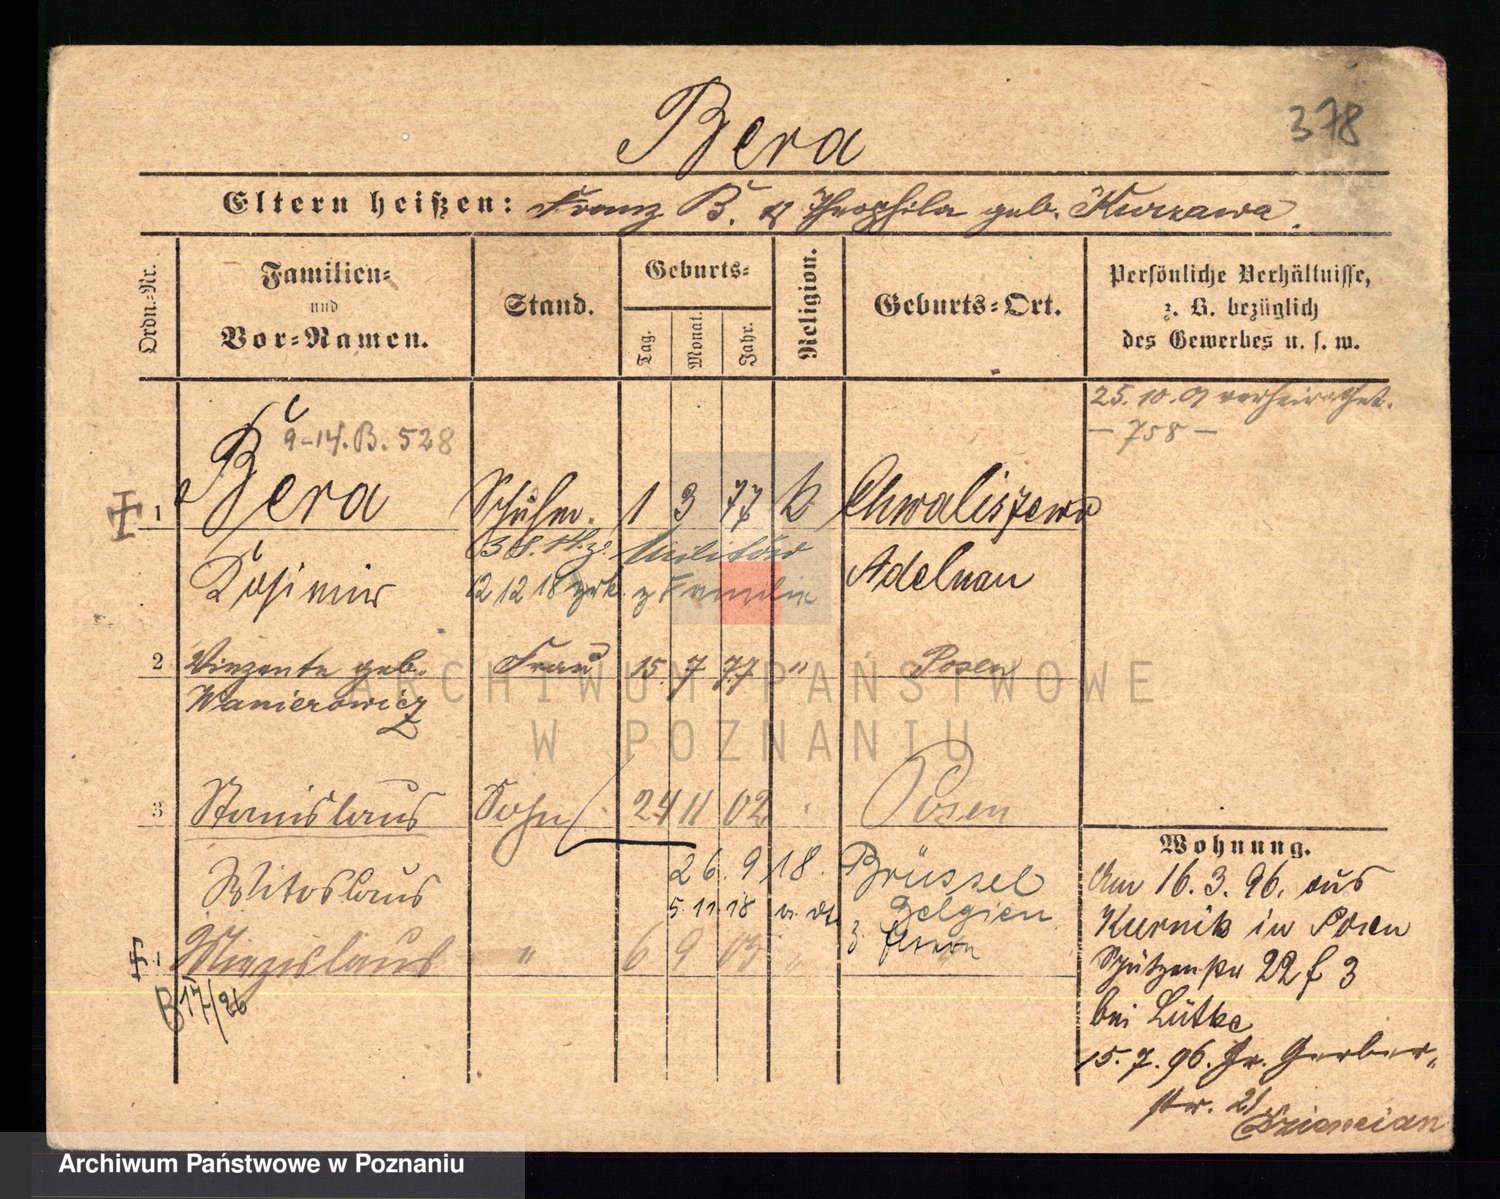 Bera
378
Eltern heißen: Franz B. & Theophila geb. Kurzawa.
Ordn.-Nr.
Familien- und Vor-Namen.
Stand.
Geburts-
Tag.
Monat.
Jahr.
Religion.
Geburts-Ort.
Persönliche Verhältnisse, z. B. bezüglich des Gewerbes u. s. w.
25. 10. 01 verheirathet.
— 758 —
9-14. B. 528
1 Bera Schuhm. 1 3 77 k. Chwaliszewo
Kasimir Adelnau
Militär
12 12 18 zrk. z Familie
2 Vinzente geb. Frau 15. 7 77 " Posen
Wanierowicz
3 Stanislaus Sohn 24 11 02 Posen
Witoslaus 26. 9 18. Brüssel
5. 11 18 Belgien
z Eltern
Miezislaus " 6 9 03 "
B 17/26
Wohnung.
Am 16. 3. 96. aus
Kurnik in Posen
Schützenstr 22 f 3
bei Lütke
15. 7. 96. Gr. Gerber-
str. 21
ARCHIWUM PAŃSTWOWE
W POZNANIU
Archiwum Państwowe w Poznaniu